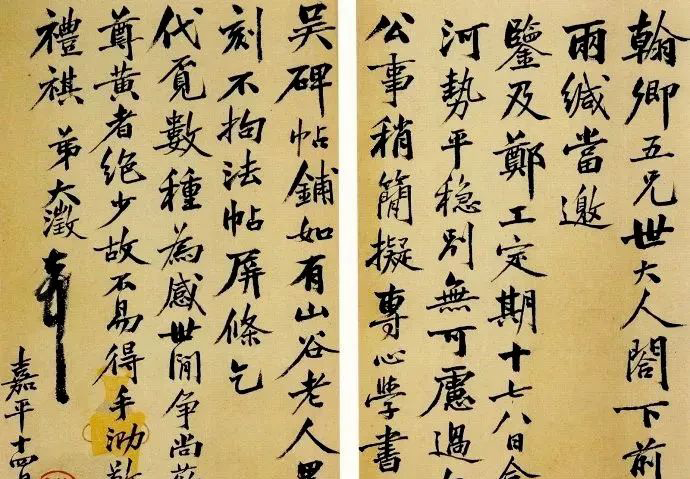 翰卿五兄世大人閣下前
兩緘當邀
鑒及鄭工定期十七八日合
河勢平穩別無可慮過
公事稍簡擬專心學書
吳碑帖鋪如有山谷老人
刻不拘法帖屏條乞
代覓數種為感世間爭尚
尊黃者絕少故不易得手泐
禮祺 弟大澂
嘉平十四日